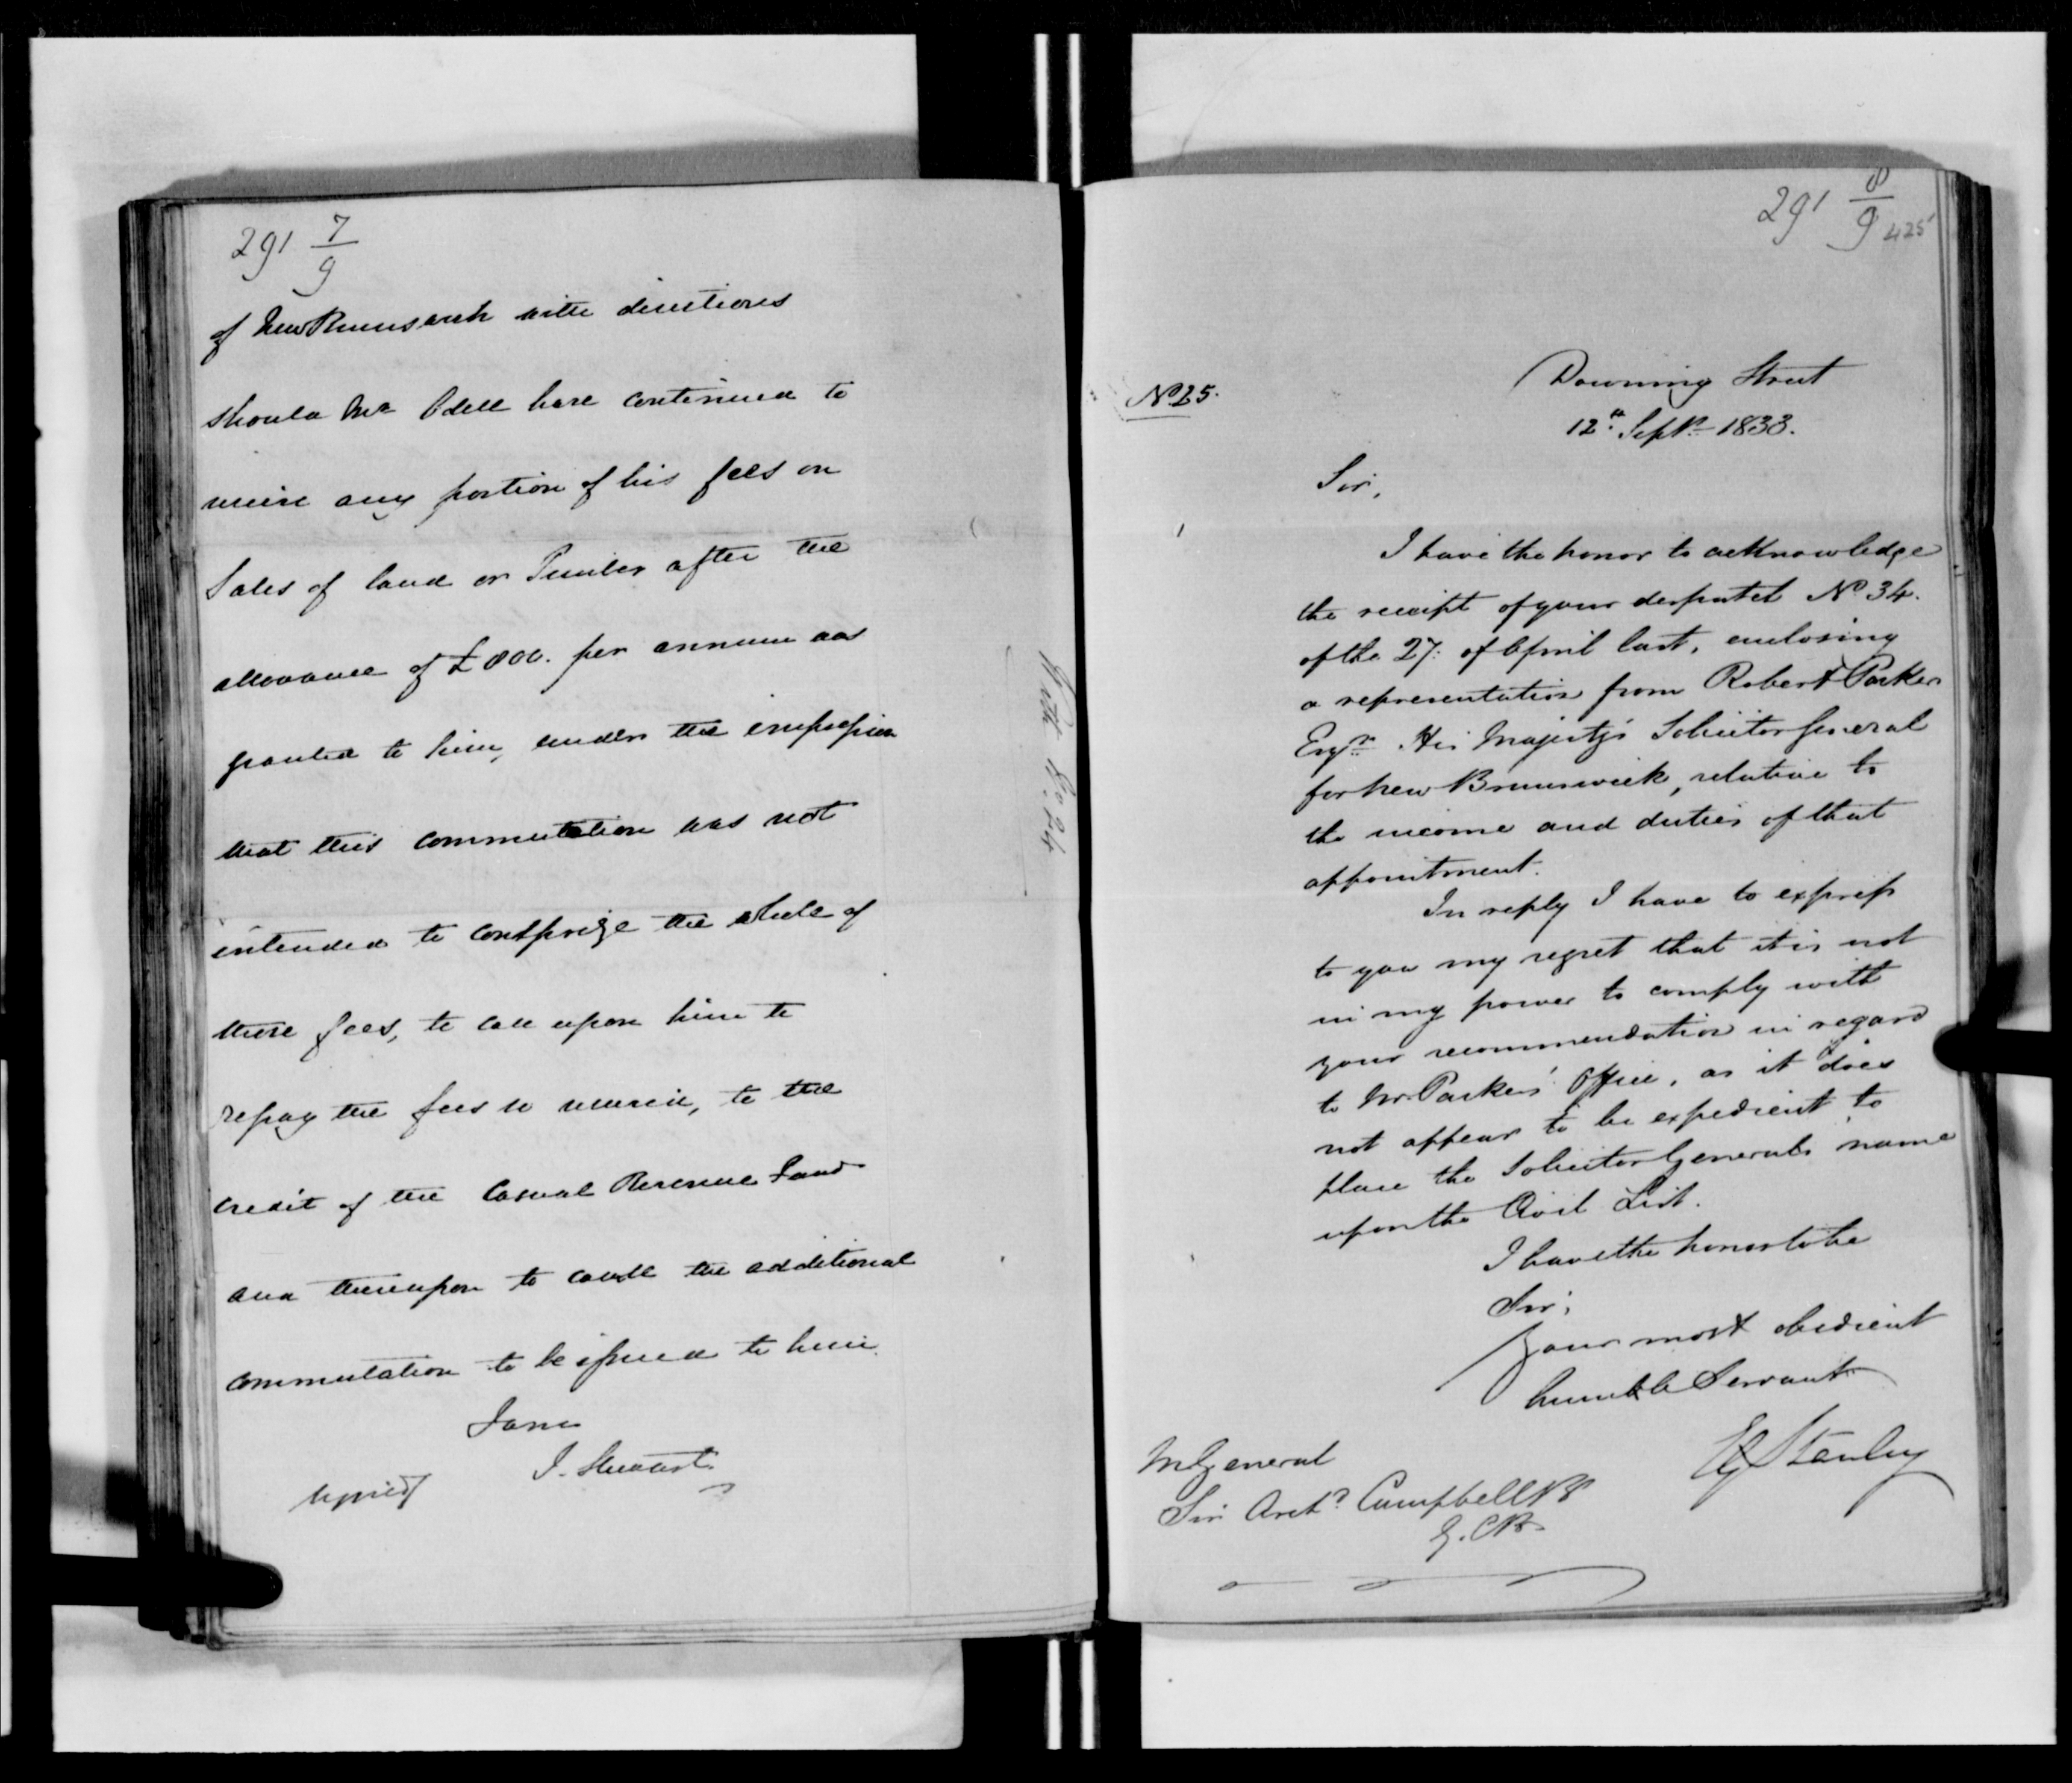 291 7/9
of New Brunswick with directions
should Mr Odell have continued to
receive any portion of his fees on
Sales of land or Timber after the
allowance of £800. per annum was
granted to him, under the impression
that this commutation was not
intended to comprize the whole of
these fees, to call upon him to
repay the fees so received, to the
credit of the Casual Revenue Fund
and thereupon to cause the additional
commutation to be issued to him.
I am
signed J. Stewart
With No. 24
291 8/9
425
No 25.
Downing Street
12th Septr 1833.
Sir,
I have the honor to acknowledge
the receipt of your despatch No 34.
of the 27: of April last, enclosing
a representation from Robert Parker
Esqr. His Majesty's Solicitor General
for New Brunswick, relative to
the income and duties of that
appointment.
In reply I have to express
to you my regret that it is not
in my power to comply with
your recommendation in regard
to Mr. Parker's Office, as it does
not appear to be expedient to
place the Solicitor General's name
upon the Civil List.
I have the honor to be
Sir,
Your most obedient
humble Servant
EG Stanley
M General
Sir Archd Campbell Bt
G.C.B.